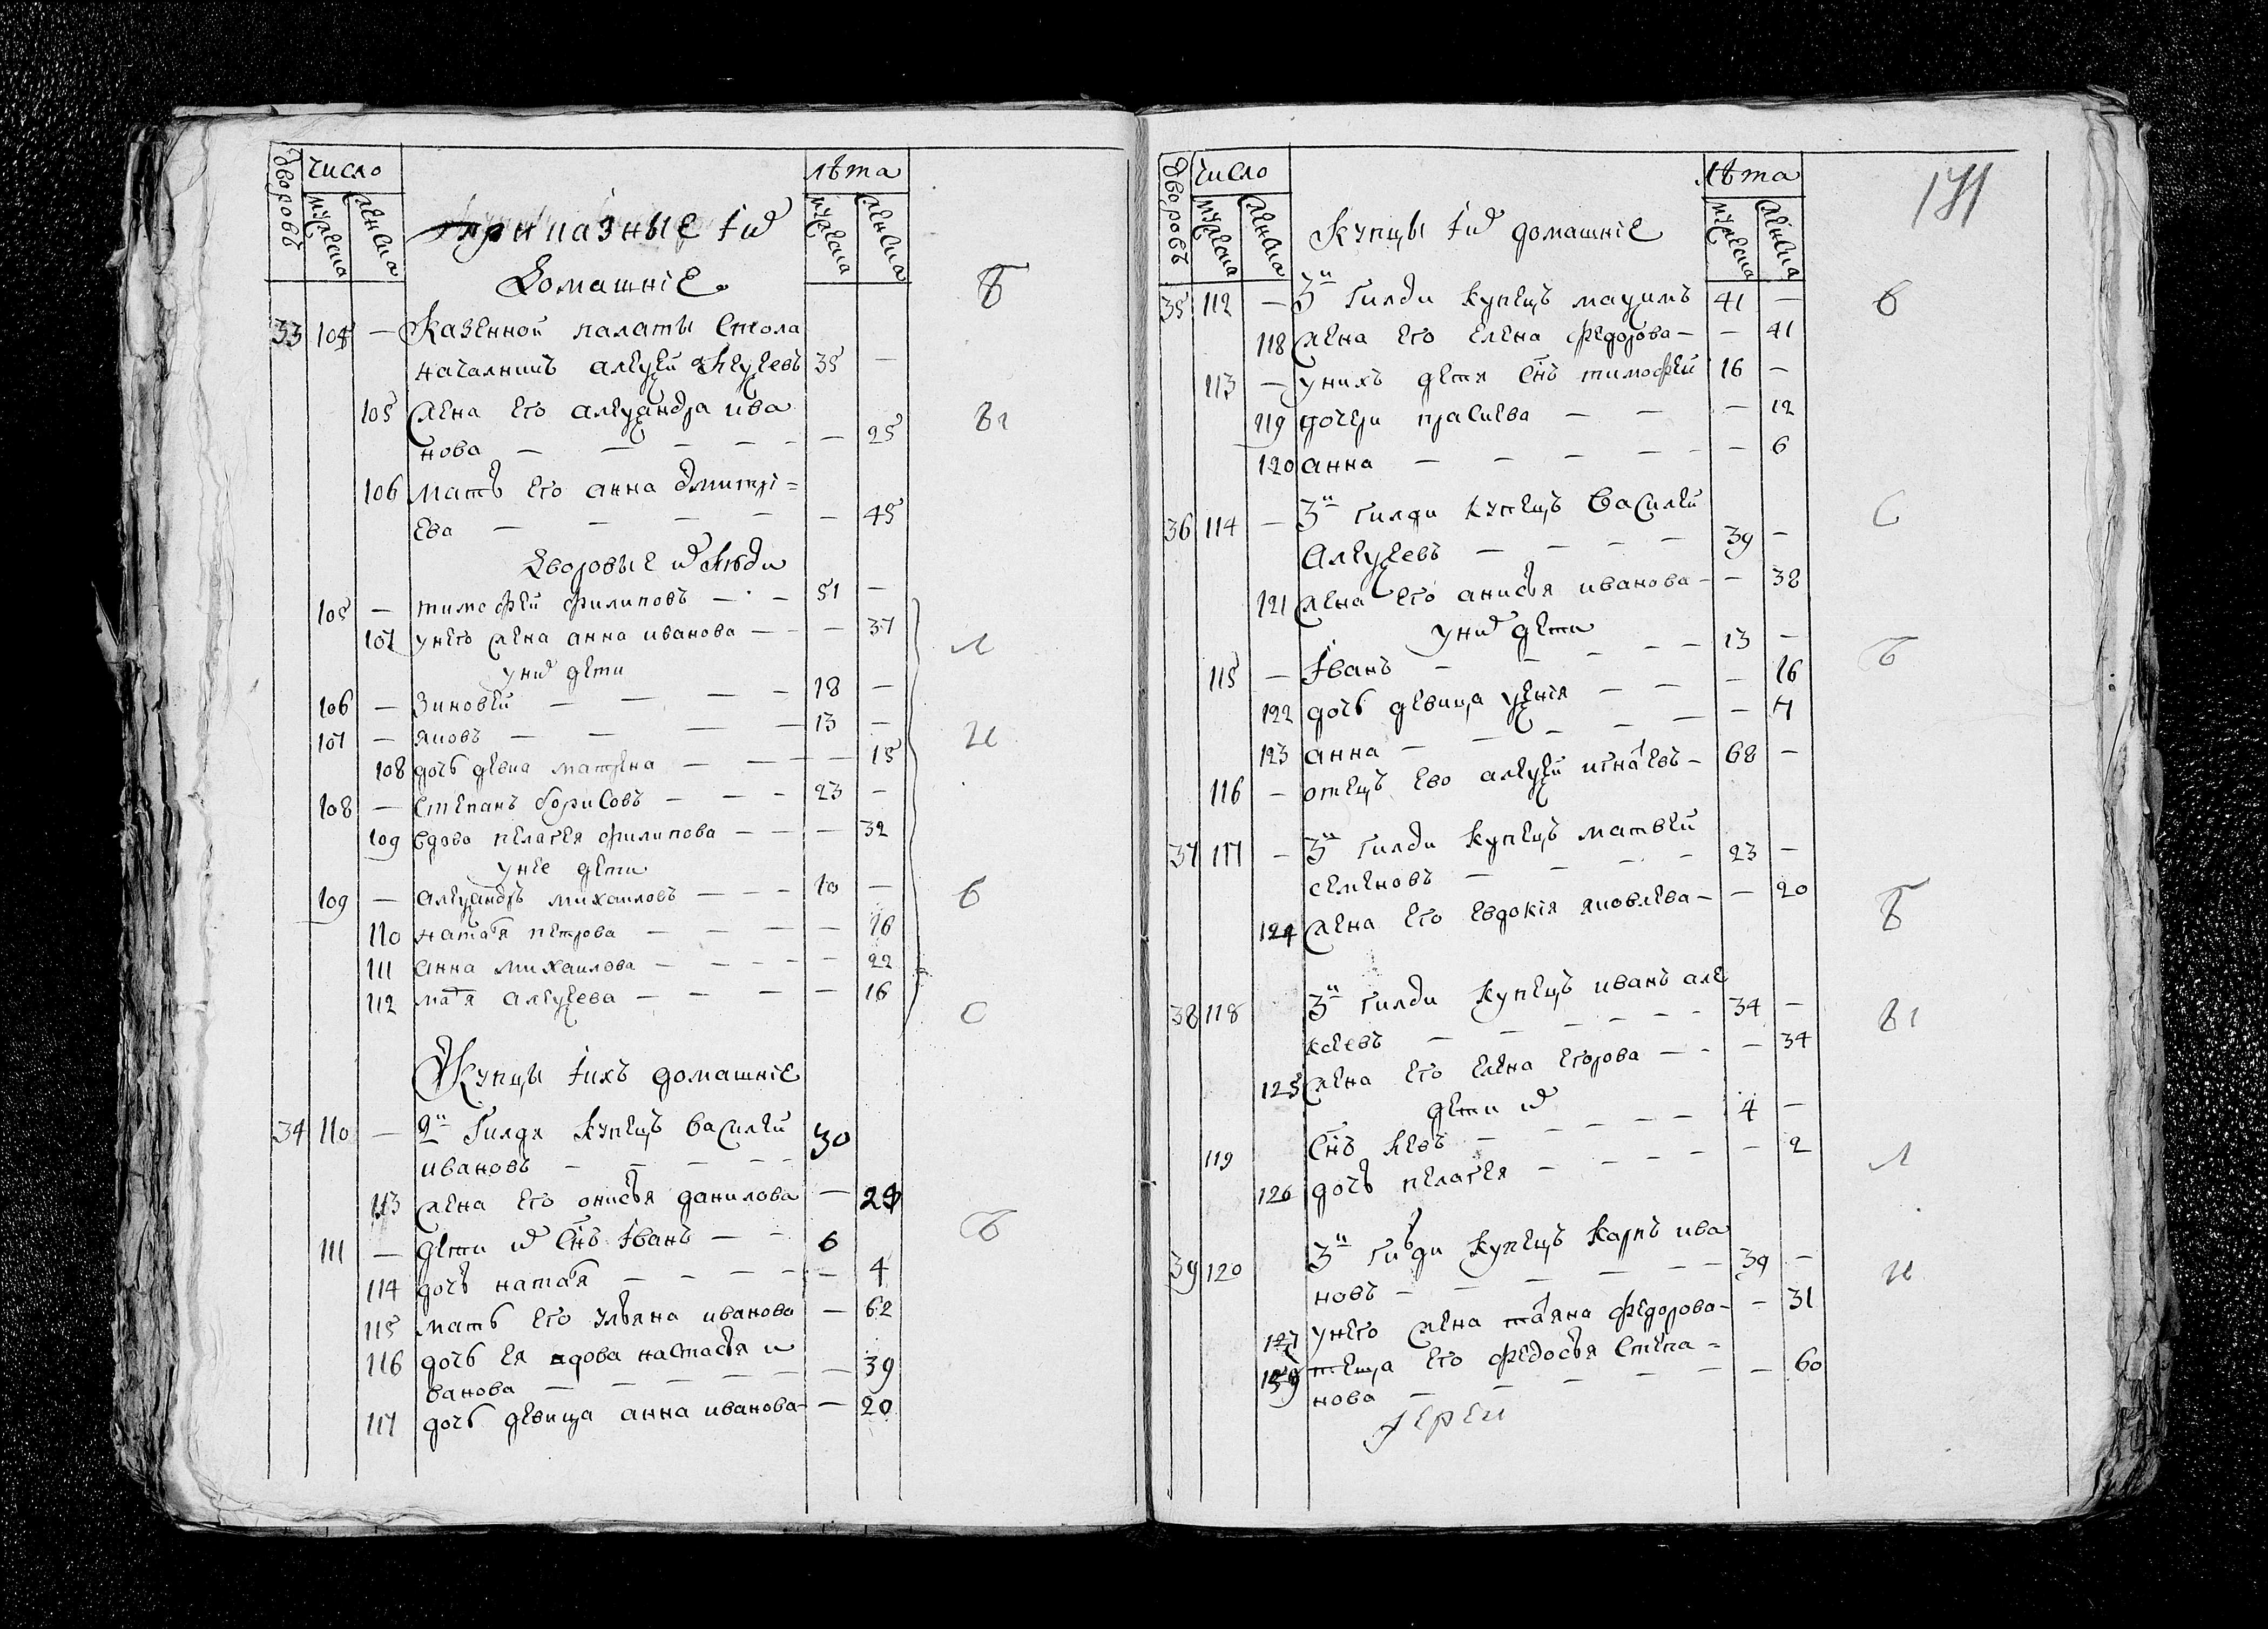 дворовъ число мужеска женска лѣта мужеска женска
приказные їих
Домашнїе
33 104 — Казенной палаты стола
началникъ алеѯѣй алеѯеевъ 35 —
105 жена его алеѯандра ива
нова — — — — — 25
106 мать его анна дмитрі=
ева — — — — — 45
Дворовые их люди
105 — тимофей филиповъ — — 51 —
107 унего жена анна иванова — — — 37
уних дети
106 — зиновей — — — 18 —
107 — яковъ — — — 13 —
108 дочь девка матрена — — — 15
108 — степанъ борисовъ — — — 23 —
109 вдова пелагея филипова — — — 32
унее дети
109 — алеѯандръ михаиловъ — — — 10 —
110 наталя петрова — — — — 16
111 анна михаилова — — — — 22
112 мар҃я алеѯеева — — — — 16
Купцы їихъ домашнїе
34 110 — 2й Гилди купецъ василей
ивановъ — — — — 30
113 жена его онисья данилова — 28
111 — дети их сн҃ъ їванъ — — 6
114 дочь наталя — — — — — 4
115 мать его ульяна иванова — 62
116 дочь ея вдова настасья и
ванова — — — — — 39
117 дочь девица анна иванова — — 20
Б
Вг
Л
И
В
С
Б
дворовъ число мужеска женска лѣта мужеска женска
171
Купцы їих домашнїе
35 112 — 3й гилди купецъ маѯимъ 41 —
118 жена его елена федорова — — 41
113 — унихъ детя сн҃ъ тимофей 16 —
119 дочери прасковa — — — 12
120 анна — — — — — 6
36 114 — 3й гилди купецъ василей
Алеѯеевъ — — — — 39 —
121 жена его анисья иванова — — 38
уних дети
115 — їванъ — — — — 13 —
122 дочь девица ѯенїя — — — 16
123 анна — — — — — 7
116 — отецъ ево алеѯѣй игнатевъ — 68 —
37 117 — 3й гилди купецъ матвей
семеновъ — — — — 23 —
124 жена его евдокїя яковлева — — 20
38 118 3й гилди купецъ иванъ але
ксеевъ — — — — — 34 —
125 жена его елена егорова — — — 34
дети их
119 сн҃ъ левъ — — — — 4 —
126 дочь пелагея — — — — — 2
39 120 3й гилди купецъ карпъ ива
новъ — — — — — 39 —
127 унего жена татяна федорова — — 31
тещa его федосья степа=
нова — — — — — 60
їерей
В
С
Б
Б
Вг
Л
И